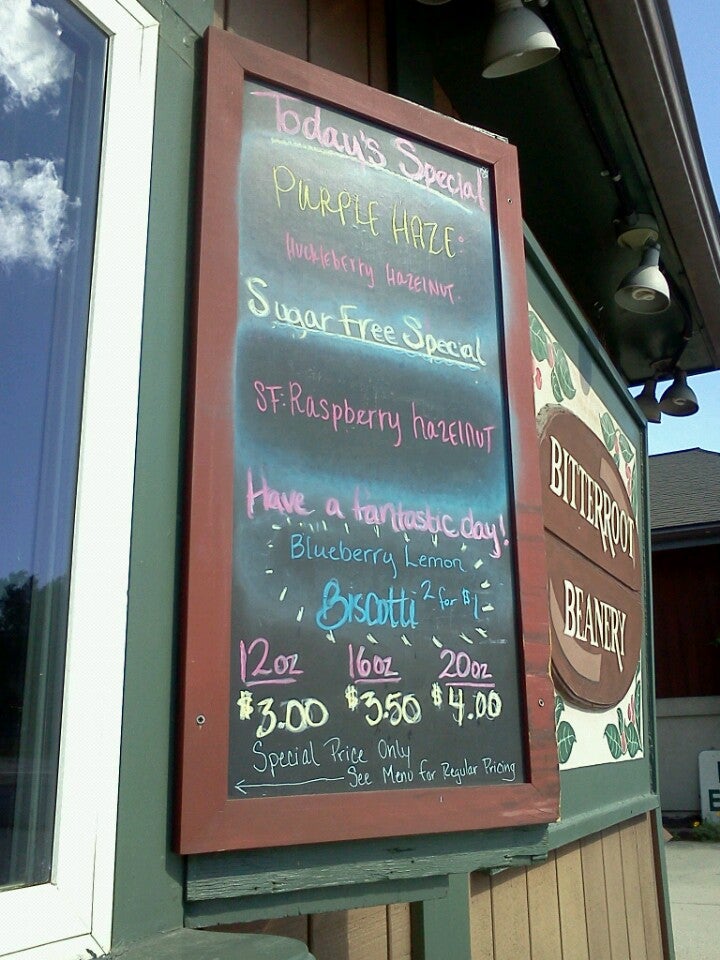 Today's Special
PURPLE HAZE:
Huckleberry HAZELNUT.
Sugar Free Special
SF: Raspberry hazelNUT
Have a fantastic day!
Blueberry Lemon
Biscotti 2 for $1
12oz 16oz 20oz
$3.00 $3.50 $4.00
Special Price Only
See Menu for Regular Pricing
BITTERROOT
BEANERY